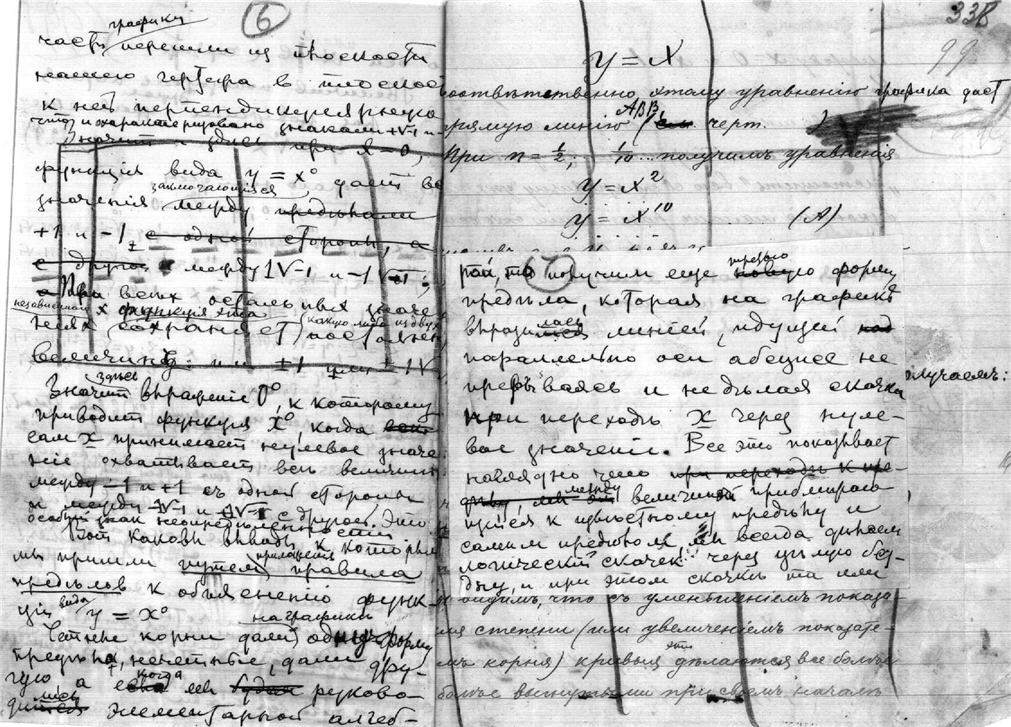 6
графики
часть перешли из плоскости
нашего чертежа в плоскость
к ней перпендикулярную
что и охарактеризовано знаками +√-1 и
Значит и здесь при x=0,
функция вида y = x⁰ дает все
заключающиеся
значения между пределами
+1 и -1, с одной стороны, а
с другой между 1√-1 и -1√-1;
При всех остальных значе-
независимой x функция эта
ниях сохраняет какую либо из двух постоянных
величин: или ±1 или ± 1√
Значит здесь выражение 0⁰, к которому
приводит функция x⁰, когда
сам x принимает нулевое значе-
ние охватывает все величины
между -1 и +1 с одной стороны
и между -1√-1 и +1√-1 с другой. Это
особый знак неопределенности
Вот каковы выводы к которым
мы пришли путем приложения правила
пределов к объяснению функ-
ции вида y = x⁰ на графики
Четные корни дают одну форму
предела, нечетные, дали дру-
гую а когда мы руково-
дились элементарной алгеб-
338
99
y = x
соответственно этому уравнению графика даст
прямую линию АВВ, черт.
При n = ½, 1/10 ... получимъ уравнения
y = x²
y = x¹⁰ (A)
7
рой, то получим еще третью форму
предела, которая на графике
выразилась линией, идущей
параллельно оси абсцисс не
прерываясь и не делая скачка
при переходе x через нуле-
вое значение. Все это показывает
наглядно что при переходе к пре-
делу, мы между величиной приближаю-
щейся к известному пределу и
самим пределом мы всегда делаем
логический скачек через целую без-
дну, и при этом скачке та или
получаемъ:
видимъ, что съ уменьшениемъ показа
ля степени (или увеличениемъ показате-
лемъ корня) кривыя эти делаются все более
более выгнутыми при своемъ начале